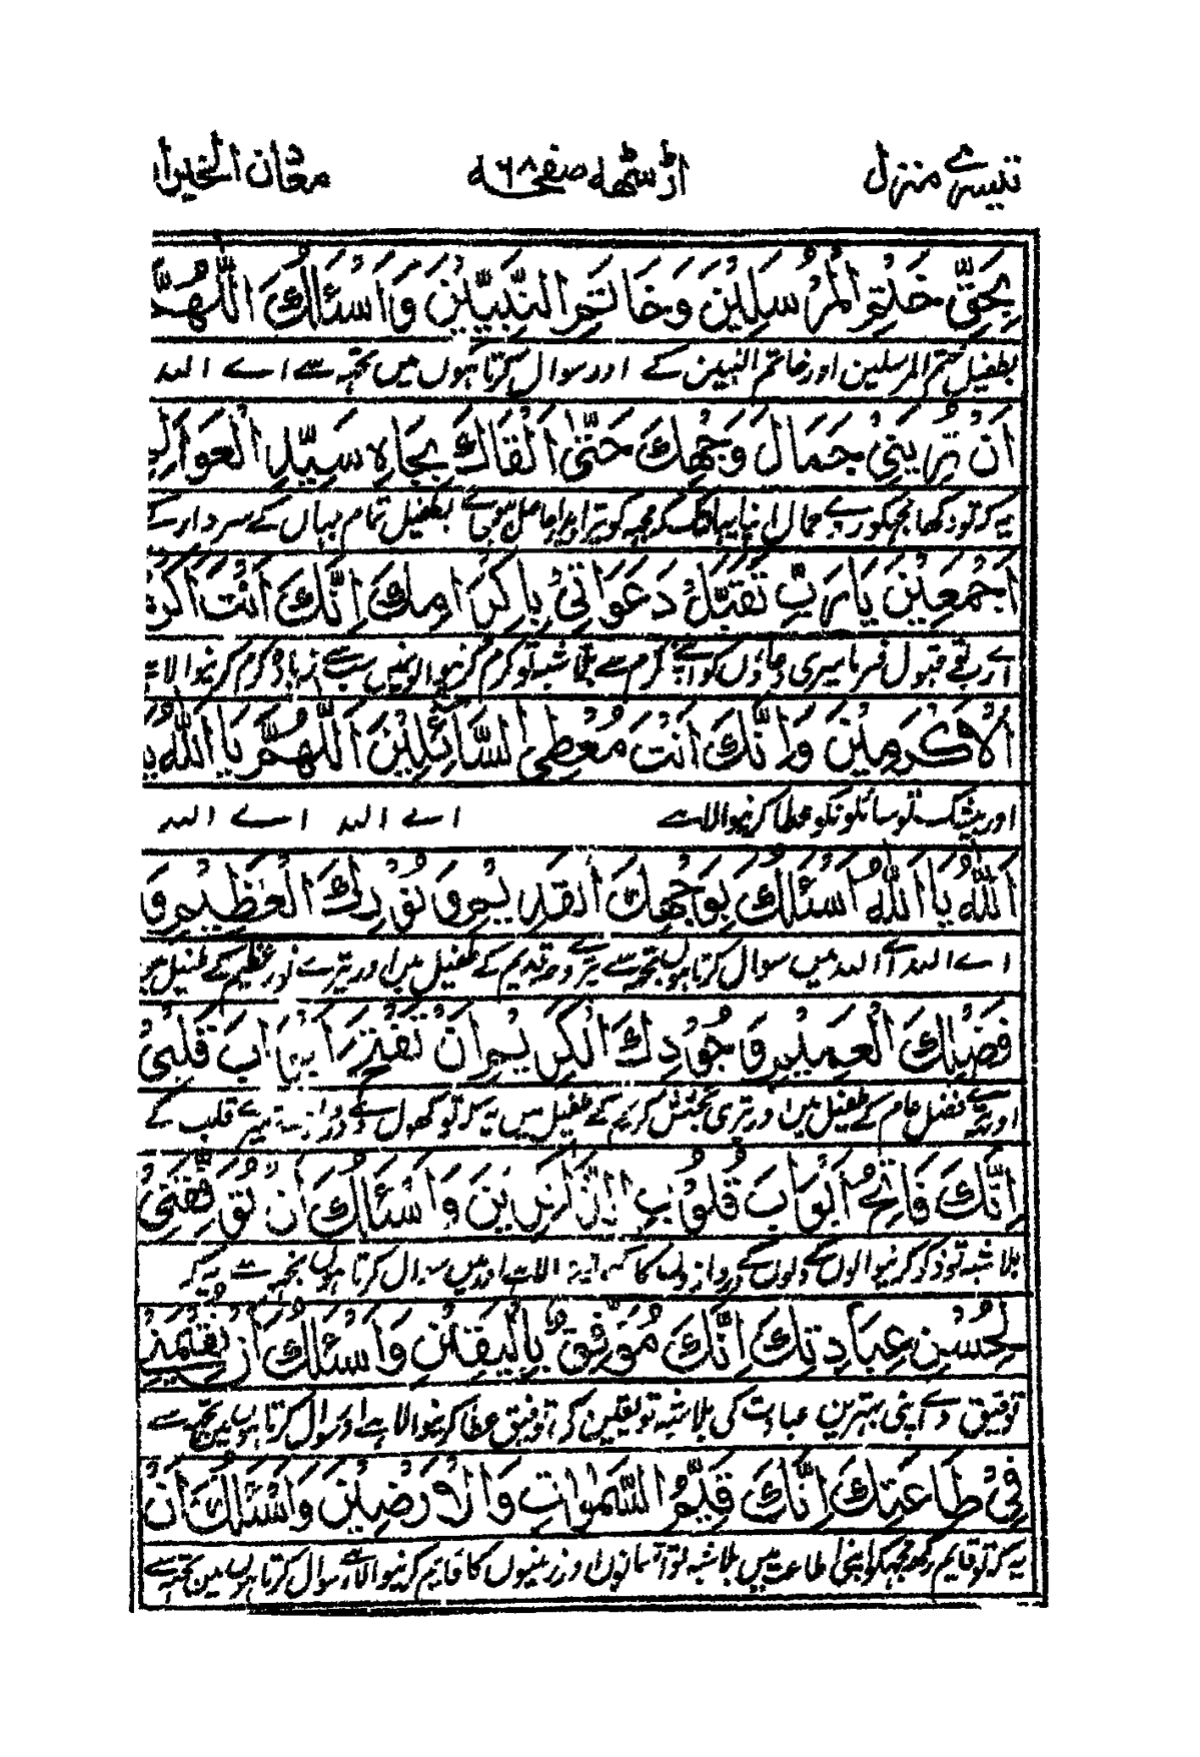 تیسرے منزل اڑسٹھہ صفحہ ۶۸ معادن الخیرا
بِحَقِّ خَتْمِ الْمُرْسَلِيْنَ وَخَاتَمِ النَّبِيِّيْنَ وَاَسْئَلُكَ اللّٰهُمَّ
بطفیل ختم المرسلین اور خاتم النبین کے اور سوال کرتا ہوں میں تجہہ سے اے اللہ
اَنْ تُرِيَنِيْ جَمَالَ وَجْهِكَ حَتّٰى اَلْقَاكَ بِجَاهِ سَيِّدِ الْعَوَالِ
یہ کہ تو دکھا مجہکو جمال اپنا یہانتک کہ مجہہ کو تیرا دیدار حاصل ہوی بطفیل تمام جہاں کے سردار کے
اَجْمَعِيْنَ يَا رَبِّ تَقَبَّلْ دَعَوَاتِيْ بِاِكْرَامِكَ اِنَّكَ اَنْتَ اَكْرَمُ
اے رب تو قبول فرما میری دعاؤں کو اپنے کرم سے بلا شبہ تو کرم کرنیوالونمیں سب سے زیادہ کرم کرنیوالا ہے
الْاَكْرَمِيْنَ وَاِنَّكَ اَنْتَ مُعْطِي السَّآئِلِيْنَ اَللّٰهُمَّ يَا اَللّٰهُ يَا
اور بیشک تو سائلونکو عطا کرنیوالا ہے اے اللہ اے اللہ
اَللّٰهُ يَا اَللّٰهُ اَسْئَلُكَ بِوَجْهِكَ الْقَدِيْمِ وَنُوْرِكَ الْعَظِيْمِ وَ
اے اللہ اے اللہ میں سوال کرتا ہوں تجہہ سے تیرے وجہ قدیم کے طفیل میں اور تیرے نور عظیم کے طفیل میں
فَضْلِكَ الْعَمِيْمِ وَجُوْدِكَ الْكَرِيْمِ اَنْ تَفْتَحَ اَبْوَابَ قَلْبِيْ
اور تیرے فضل عام کے طفیل میں اور تیری بخشش کریم کے طفیل میں یہ کہ تو کھول دے دروازے میرے قلب کے
اِنَّكَ فَاتِحُ اَبْوَابَ قُلُوْبِ الذَّاكِرِيْنَ وَاَسْئَلُكَ اَنْ تُوَفِّقَنِيْ
بلا شبہ تو ذکر کرنیوالوں کے دلوں کے دروازوں کا اور میں سوال کرتا ہوں تجہہ سے یہ کہ
لِحُسْنِ عِبَادَتِكَ اِنَّكَ مُوَفِّقٌ بِالْيَقِيْنِ وَاَسْئَلُكَ اَنْ تُقِيْمَنِيْ
توفیق دے اپنی بہترین عبادت کی بلا شبہ تو یقین کی توفیق عطا کرنیوالا ہے اور سوال کرتا ہوں میں تجہہ سے
فِيْ طَاعَتِكَ اِنَّكَ قَيِّمُ السَّمٰوَاتِ وَالْاَرْضِيْنَ وَاَسْئَلُكَ اَنْ
یہ کہ تو قایم رکھہ مجہکو اپنی طاعت میں بلا شبہ تو آسمانوں اور زمینوں کا قایم کرنیوالا ہے اور سوال کرتا ہوں میں تجہہ سے